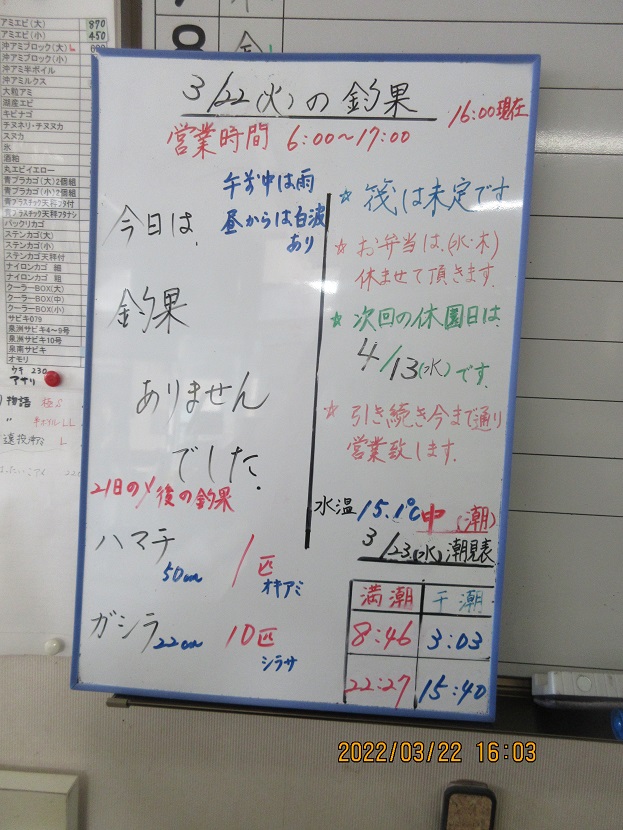 3/22(火)の釣果
16:00現在
営業時間 6:00~17:00
午前中は雨
昼からは白波
あり
今日は、
釣果
ありません
でした.
21日の〆後の釣果
ハマチ
50cm
1匹
オキアミ
ガシラ
22cm
10匹
シラサ
☆ 筏は未定です
☆ お弁当は、(水・木)
休ませて頂きます.
☆ 次回の休園日は、
4/13(水)です.
☆ 引き続き今まで通り
営業致します.
水温 15.1℃ 中(潮)
3/23(水)潮見表
満潮 干潮
8:46 3:03
22:27 15:40
アミエビ(大) 870
アミエビ(小) 450
沖アミブロック(大)
沖アミブロック(小)
沖アミ半ボイル
沖アミルクス
大粒アミ
湖産エビ
キビナゴ
チヌネリ・チヌヌカ
スヌカ
氷
酒粕
丸エビイエロー
青プラカゴ(大)2個組
青プラカゴ(小)2個組
青プラスチック天秤フタ付
青プラスチック天秤フタナシ
バックリカゴ
ステンカゴ(大)
ステンカゴ(小)
ステンカゴ天秤付
ナイロンカゴ 組
ナイロンカゴ 組
クーラーBOX(大)
クーラーBOX(中)
クーラーBOX(小)
サビキ079
泉洲サビキ4~9号
泉洲サビキ10号
泉南サビキ
オモリ
ウキ 230
アサリ
2022/03/22 16:03